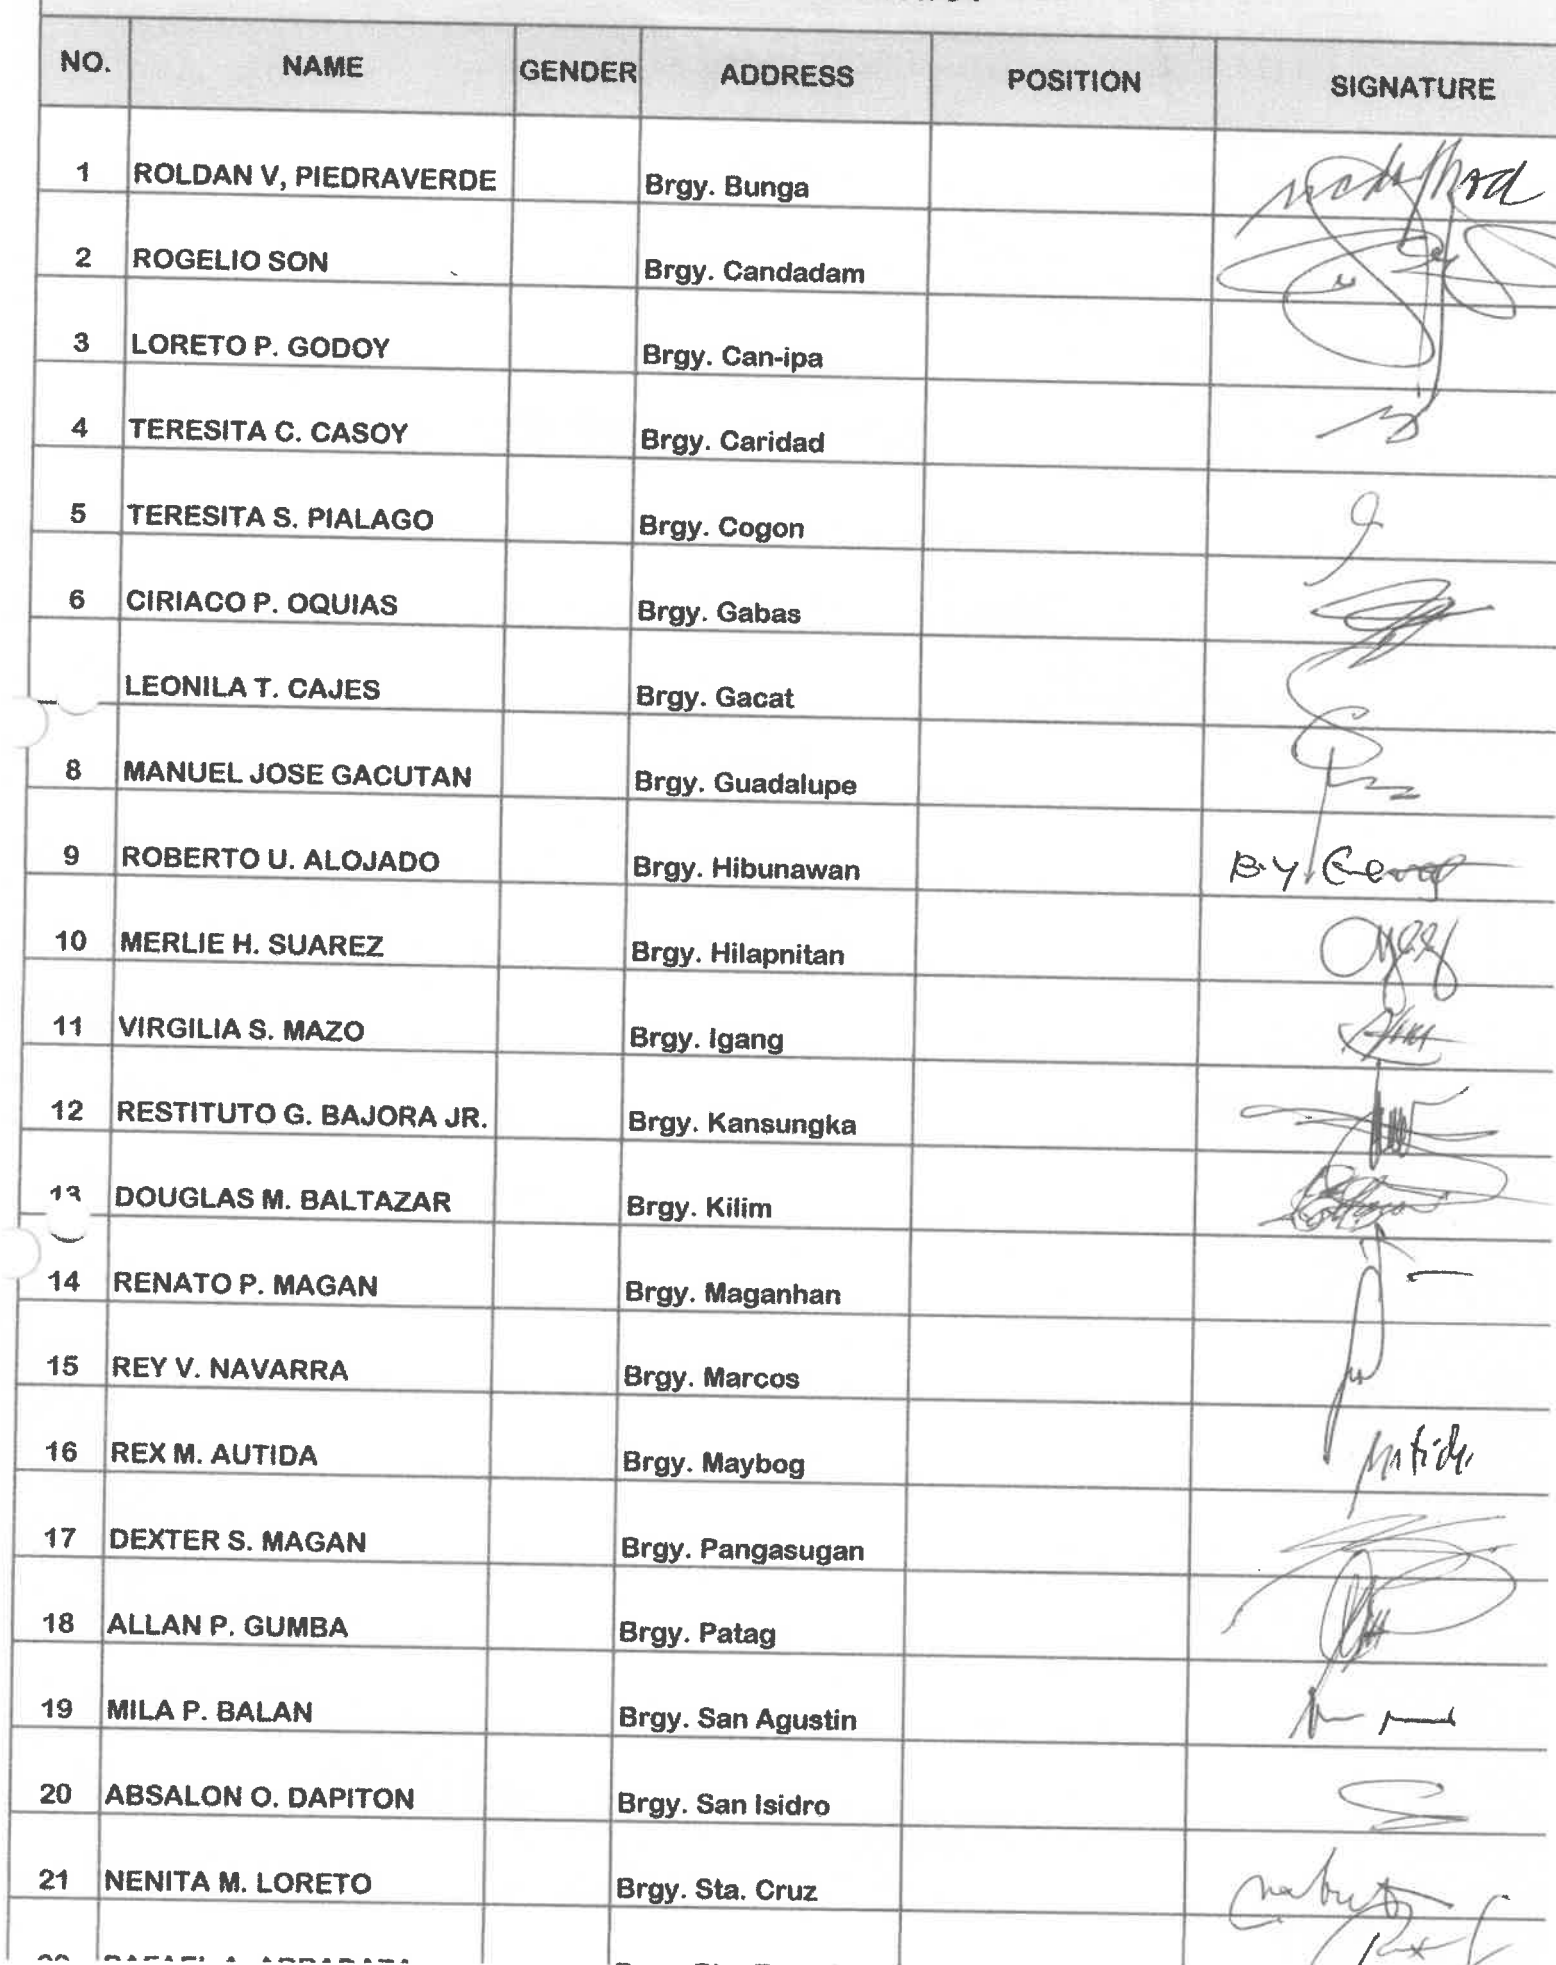 NO. NAME GENDER ADDRESS POSITION SIGNATURE
1 ROLDAN V, PIEDRAVERDE Brgy. Bunga
2 ROGELIO SON Brgy. Candadam
3 LORETO P. GODOY Brgy. Can-ipa
4 TERESITA C. CASOY Brgy. Caridad
5 TERESITA S. PIALAGO Brgy. Cogon
6 CIRIACO P. OQUIAS Brgy. Gabas
LEONILA T. CAJES Brgy. Gacat
8 MANUEL JOSE GACUTAN Brgy. Guadalupe
9 ROBERTO U. ALOJADO Brgy. Hibunawan BY
10 MERLIE H. SUAREZ Brgy. Hilapnitan
11 VIRGILIA S. MAZO Brgy. Igang
12 RESTITUTO G. BAJORA JR. Brgy. Kansungka
13 DOUGLAS M. BALTAZAR Brgy. Kilim
14 RENATO P. MAGAN Brgy. Maganhan
15 REY V. NAVARRA Brgy. Marcos
16 REX M. AUTIDA Brgy. Maybog
17 DEXTER S. MAGAN Brgy. Pangasugan
18 ALLAN P. GUMBA Brgy. Patag
19 MILA P. BALAN Brgy. San Agustin
20 ABSALON O. DAPITON Brgy. San Isidro
21 NENITA M. LORETO Brgy. Sta. Cruz